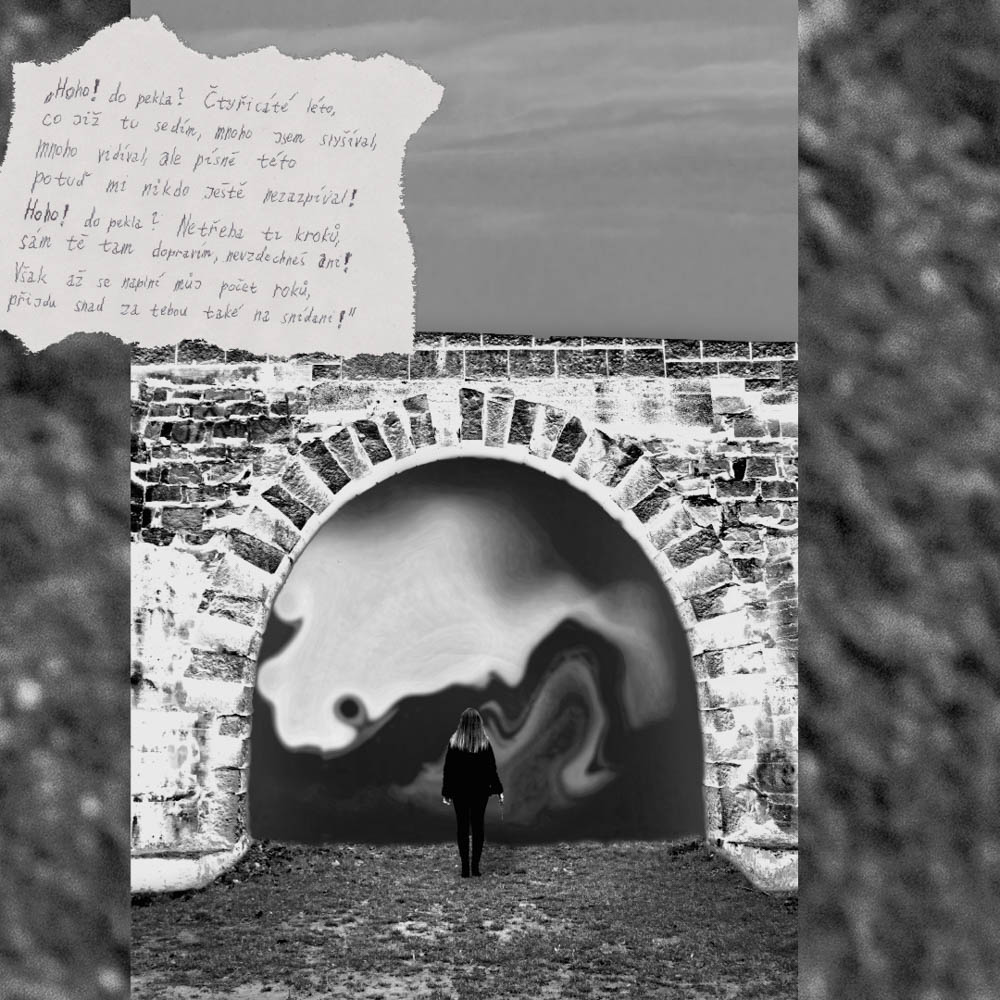 „Hoho! do pekla? Čtyřicáté léto,
co již tu sedím, mnoho jsem slyšíval,
mnoho vídíval, ale písně této
potud mi nikdo ještě nezazpíval!
Hoho! do pekla? Netřeba ti kroků,
sám tě tam dopravím, nevzdechneš ani!
Však až se naplní můj počet roků,
přijdu snad za tebou také na snídani!"